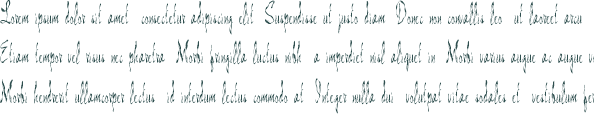 Lorem ipsum dolor sit amet consectetur adipiscing elit Suspendisse ut justo diam Donec non convallis leo ut laoreet arcu
Etiam tempor vel risus nec pharetra Morbi fringilla luctus nibh a imperdiet nisl aliquet in Morbi varius augue ac augue v
Morbi hendrerit ullamcorper lectus id interdum lectus commodo at Integer nulla dui volutpat vitae sodales et vestibulum fer